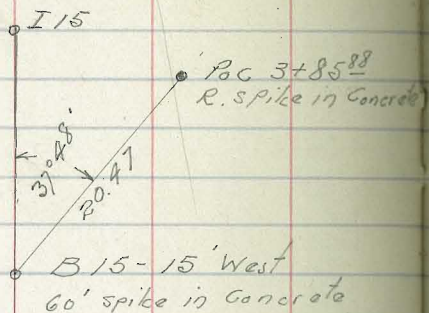 I 15
P.O.C 3+85 88
R. Spike in Concrete
37°48'
20.47
B 15 - 15' West
60' spike in Concrete